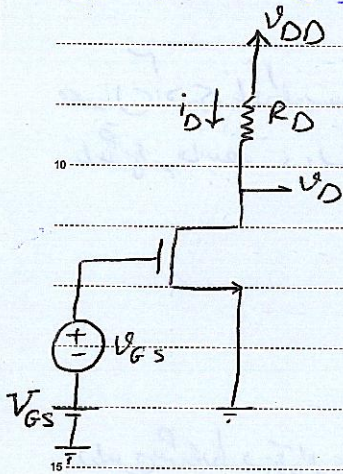 V_DD
i_D ↓ R_D
10
V_D
+
-
V_GS
V_GS
15